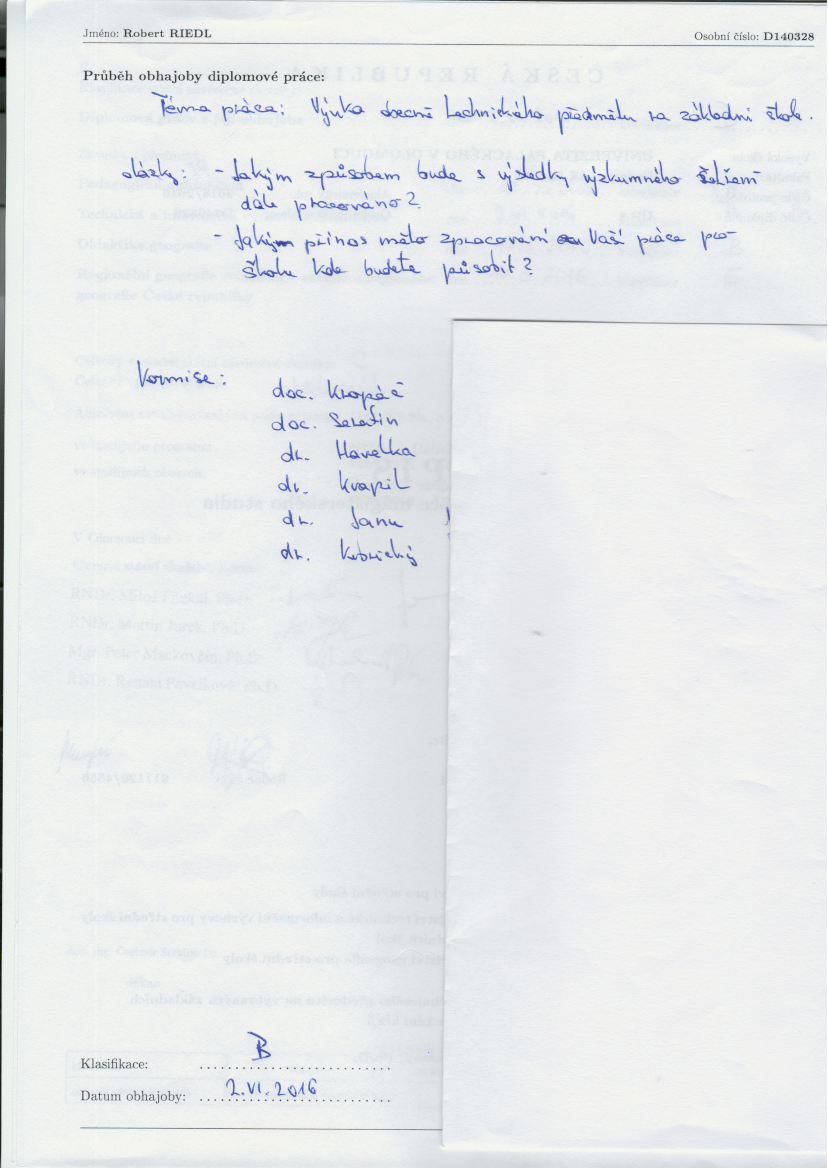 Jméno: Robert RIEDL
Osobní číslo: D140328
Průběh obhajoby diplomové práce:
Téma práce: Výuka obecně technického předmětu na základní škole.
otázky: - Jakým způsobem bude s výsledky výzkumného šetření
dále pracováno?
- Jaký přínos mělo zpracování Vaší práce pro
školu kde budete působit?
Komise:
doc. Kropáč
doc. Serafín
dr. Havelka
dr. Kvapil
dr. Janu
dr. Kubrický
Klasifikace: B
Datum obhajoby: 2.VI.2016